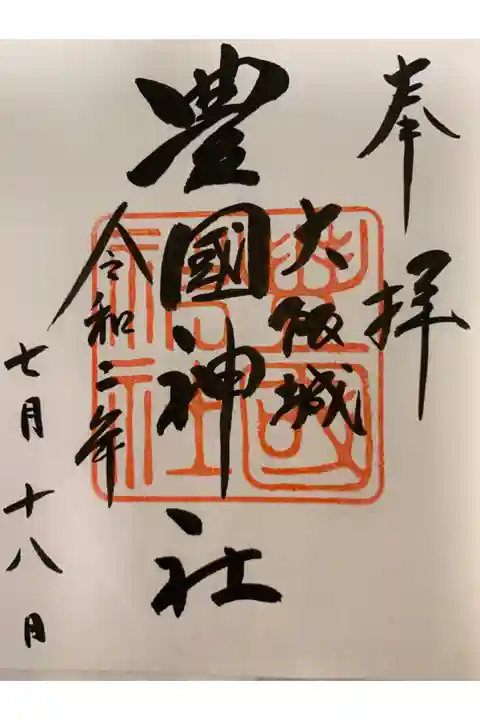 奉拝
大阪城
豊國神社
令和二年
七月十八日
豊國神社